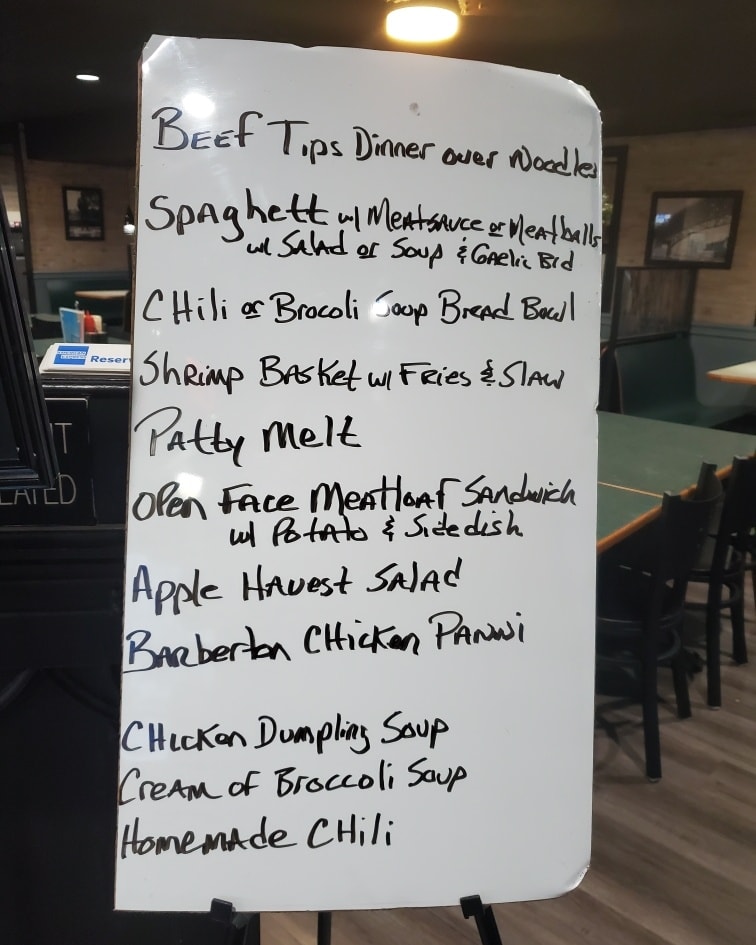 BEEF Tips Dinner over Noodles
Spaghett w/ Meatsauce or Meatballs
w/ Salad or Soup & Gaelic Brd
CHili or Brocoli Soup Bread Bowl
Shrimp Basket w/ Fries & Slaw
Patty Melt
Open Face Meatloaf Sandwich
w/ Potato & Side dish
Apple Havest Salad
Barberton CHicken PANNi
CHicken Dumpling Soup
Cream of Broccoli Soup
Homemade CHili
AMERICAN EXPRESS
Reser